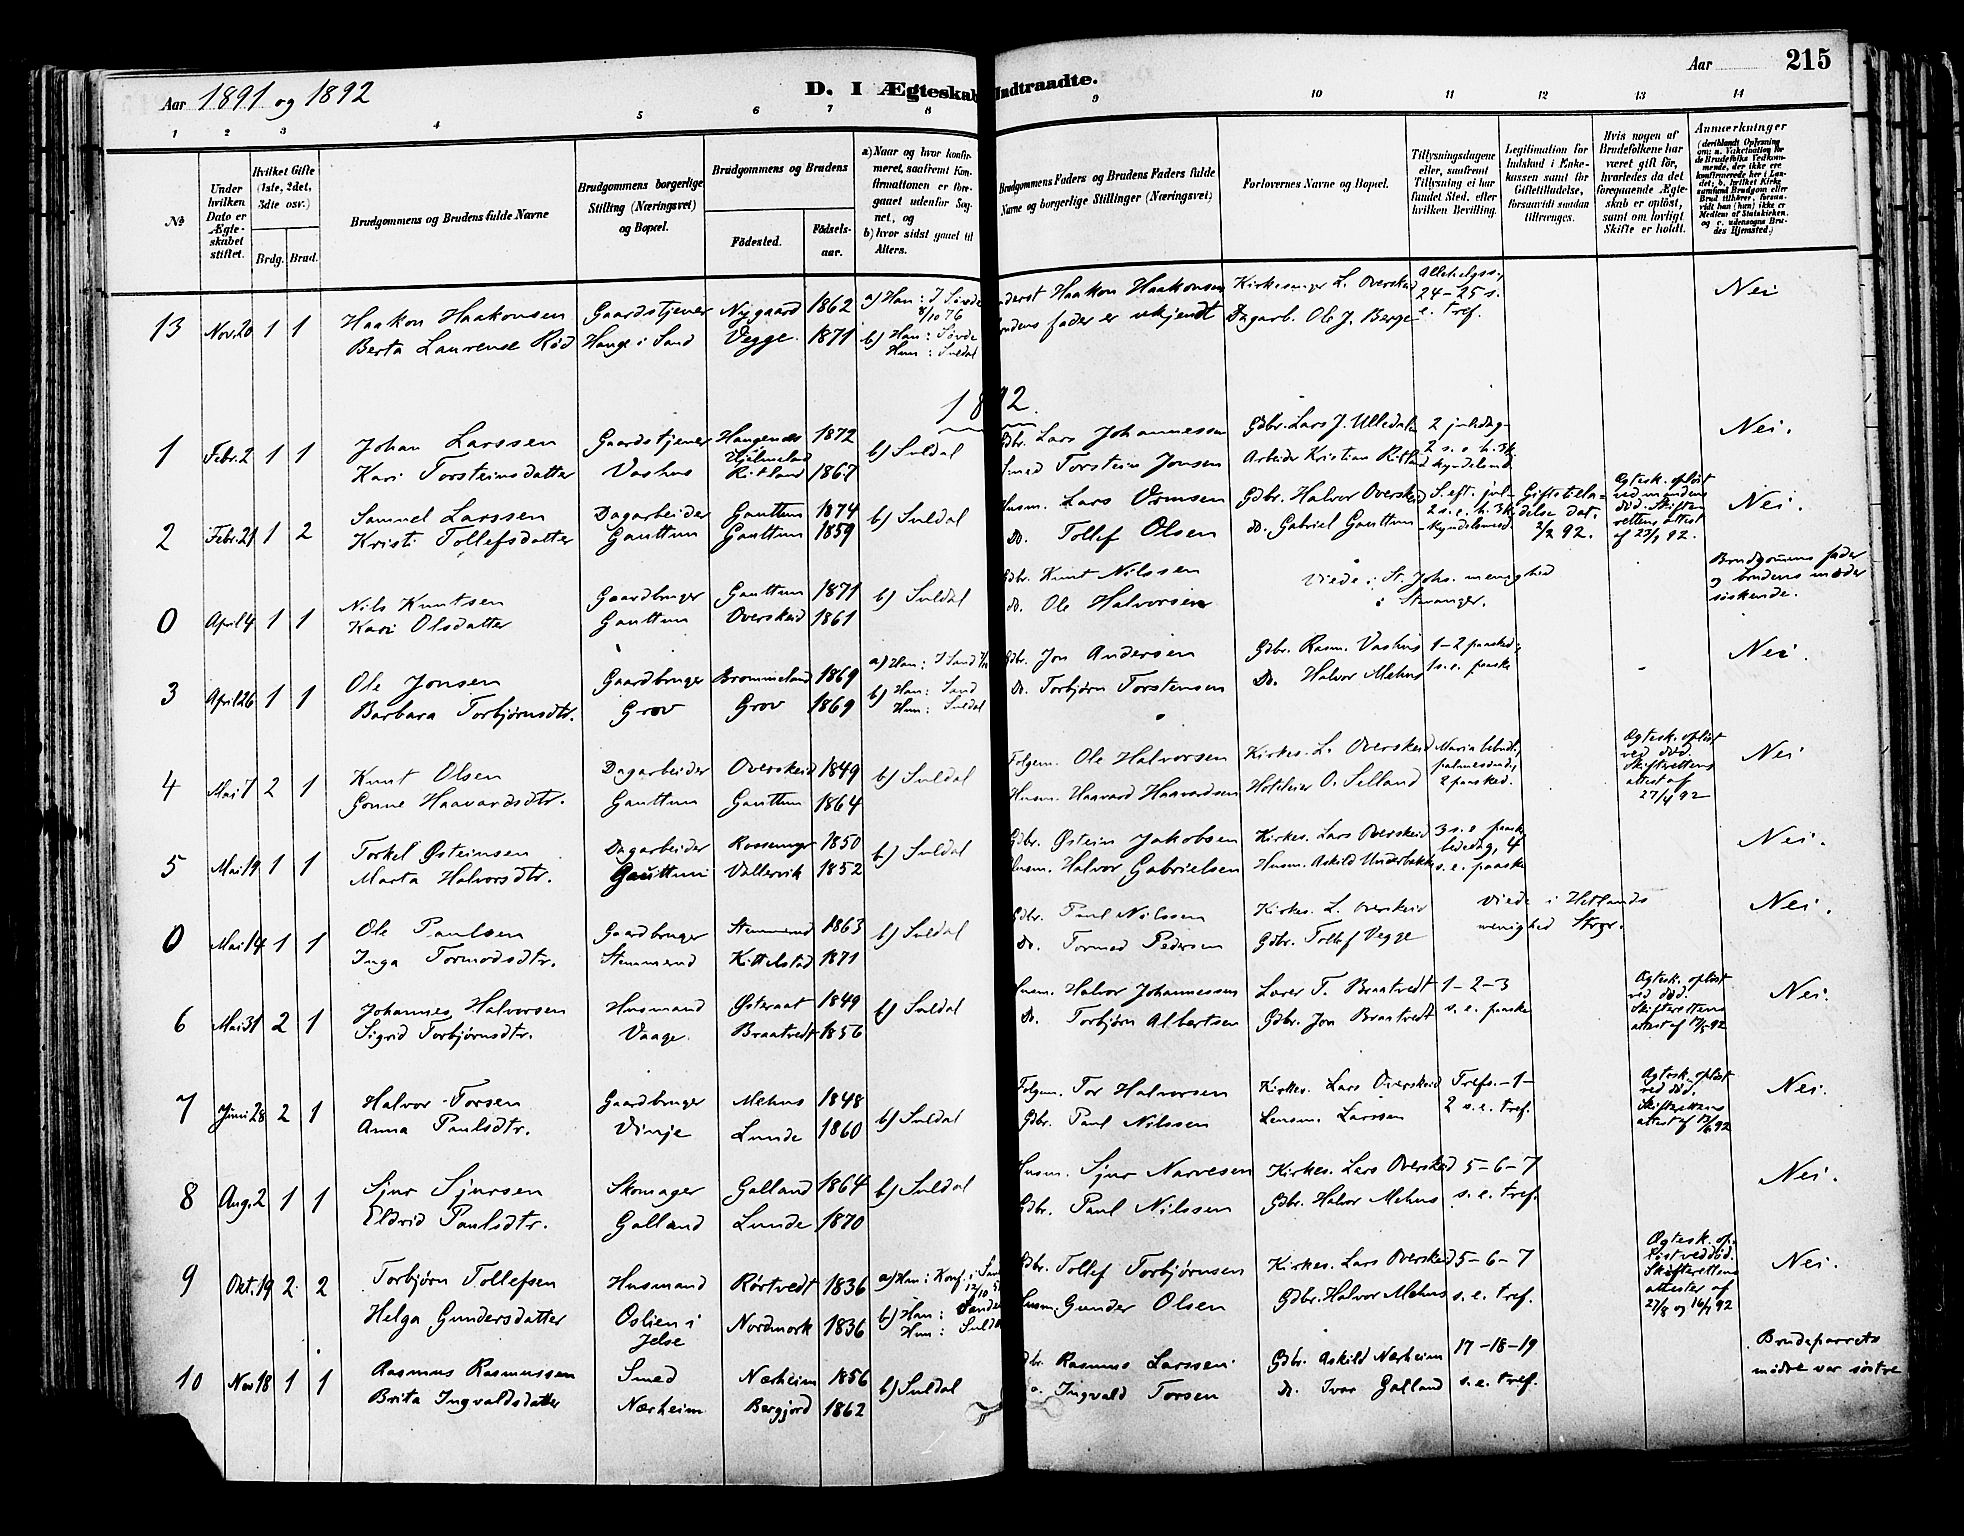 Aar 1891 og 1892
D. I Ægteskab Indtraadte.
Aar 215
1 2 3 4 5 6 7 8 9 10 11 12 13 14
№
Under hvilken Dato er Ægteskabet stiftet.
Hvilket Gifte (1ste, 2det, 3dte osv.)
Brdg. Brud.
Brudgommens og Brudens fulde Navne
Brudgommens borgerlige Stilling (Næringsvei) og Bopæl.
Brudgommens og Brudens
Födested. Födselsaar.
a) Naar og hvor konfirmeret, saafremt Konfirmationen er foregaaet udenfor Sognet, og
b) hvor sidst gaaet til Alters.
Brudgommens Faders og Brudens Faders fulde Navne og borgerlige Stillinger (Næringsvei)
Forlovernes Navne og Bopæl.
Tillysningsdagene eller, saafremt Tillysning ei har fundet Sted, efter hvilken Bevilling.
Legitimation for Indskud i Enkekassen samt for Giftetilladelse, forsaavidt saadan tiltrænges.
Hvis nogen af Brudefolkene har været gift för, hvorledes da det foregaaende Ægteskab er oplöst, samt om lovligt Skifte er holdt.
Anmærkninger
13 Nov. 20 1 1 Haakon Haakonsen Gaardstjener Nygaard 1862 a) Han: I Søvde 8/10 76 Haakon Haakonsen Kirkesanger L. Overskeid 24-25 s. e. tref. Nei
Berta Laurense Rød Hauge i Sand Vegge 1871 b) Han: Søvde Hun: Suldal Brudens fader er ukjendt Dagarb. Ole J. Berge
1892.
1 Febr. 2 1 1 Johan Larssen Gaardstjener 1872 b) Suldal Gdbr. Lars Johannessen Gdbr. Lars J. Ulledalen 2 juledag- Nei.
Kari Torsteinsdatter Vashus Hjelmeland Ritland 1867 Smed Torstein Jonsen Arbeider Kristian Ritland
2 Febr. 21 1 2 Samuel Larssen Dagarbeider Gauttun 1874 b) Suldal Husm. Lars Ormsen Gdbr. Halvor Overskeid S. eft. jul- Giftetilladelse dat. 3/2 92. Ægtesk. opløst ved mandens død. Skifterettens attest af 27/1 92. Nei.
Kristi Tollefsdatter Gauttun Gauttun 1859 Do. Tollef Olsen do. Gabriel Gauttun Kyndelsmed
0 April 4 1 1 Nils Knutsen Gaardbruger Gauttun 1871 b) Suldal Gdbr. Knut Nilssen Viede i St. Johs. menighed i Stavanger. Brudgommens fader og brudens moder siskende.
Kari Olsdatter Gauttun Overskeid 1861 do. Ole Halvorsen
3 April 26 1 1 Ole Jonsen Gaardbruger Brommeland 1869 a) Han: I Sand Gdbr. Jon Andersen Gdbr. Rasm. Vashus 1-2 paasked, Nei.
Barbara Torbjørnsdtr. Grov Grov 1869 b) Han: Sand Hun: Suldal Do. Torbjørn Torstensen Do. Halvor Mehus 1 s. e. paaske
4 Mai 7 2 1 Knut Olsen Dagarbeider Overskeid 1849 b) Suldal Folgem. Ole Halvorsen Kirkes. L. Overskeid Maria bebud., palmesønd., 2 paasked. Ægtesk. opløst ved død. Skifterettens attest af 27/4 92 Nei
Gonne Haavardsdtr. Gauttun Gauttun 1864 Husm. Haavard Haavardsen Hoteleier O. Selland
5 Mai 19 1 1 Torkel Østeinsen Dagarbeider 1850 b) Suldal Gdbr. Østein Jakobsen Kirkes. Lars Overskeid 3 s. e. paask, bededag, 4 s. e. paaske Nei.
Marta Halvorsdtr. Gauttun Vallervik 1852 Husm. Halvor Gabrielsen Husm. Askild Underbakke
0 Mai 14 1 1 Ole Paulsen Gaardbruger Stemmerud 1863 b) Suldal Gdbr. Paul Nilssen Kirkes. L. Overskeid Viede i Hetlands menighed Stvgr. Nei.
Inga Tormodsdtr. Stemmerud Kittelstad 1871 Do. Tormod Pedersen Gdbr. Tollef Vegge
6 Mai 31 2 1 Johannes Halvorsen Husmand Østeraat 1849 b) Suldal Husm. Halvor Johannessen Lærer T. Braatvedt 1-2-3 s. e. paaske Ægtesk. opløst ved død. Skifterettens attest af 17/5 92 Nei.
Sigrid Torbjørnsdtr. Vaage. Braatvedt 1856 Do. Torbjørn Albertsen Gdbr. Jon Braatvedt
7 Juni 28 2 1 Halvor Torsen Gaardbruger Mehus 1848 b) Suldal Folgem. Tor Halvorsen Kirkes. Lars Overskeid Trefs.-1-2 s. e. tref. Ægtesk. opløst ved død. Skifterettens attest af 13/6 92 Nei.
Anna Paulsdtr. Vinje Lunde 1860 Gdbr. Paul Nilssen Lensm. Larssen
8 Aug. 2 1 1 Sjur Sjursen Skomager Galland 1864 b) Suldal Husm. Sjur Narvesen Kirkes. Lars Overskeid 5-6-7 s. e. tref. Nei.
Eldrid Paulsdtr. Galland Lunde 1870 Gdbr. Paul Nilssen Gdbr. Halvor Mehus
9 Okt. 19 2 2 Torbjørn Tollefsen Husmand Rørtvedt 1836 a) Han: Konf. i Sand Gdbr. Tollef Torbjørnsen Kirkes. Lars Overskeid 5-6-7 s. e. tref. Ægtesk. opløst ved død. Skifterettens attester af 27/8 og 16/9 92 Nei.
Helga Gundersdatter Oslien i Jelse Nordmork 1836 b) Han: Hun: Suldal Husm. Gunder Olsen Gdbr. Halvor Mehus
10 Nov 18 1 1 Rasmus Rasmussen Smed Nærheim 1856 b) Suldal Gdbr. Rasmus Larssen Gdbr. Askild Nærheim 17-18-19 s. e. tref. Brudeparrets mødre var søstre
Brita Ingvaldsdatter Nærheim Bergjord 1862 Do. Ingvald Torsen Do. Ivar Galland